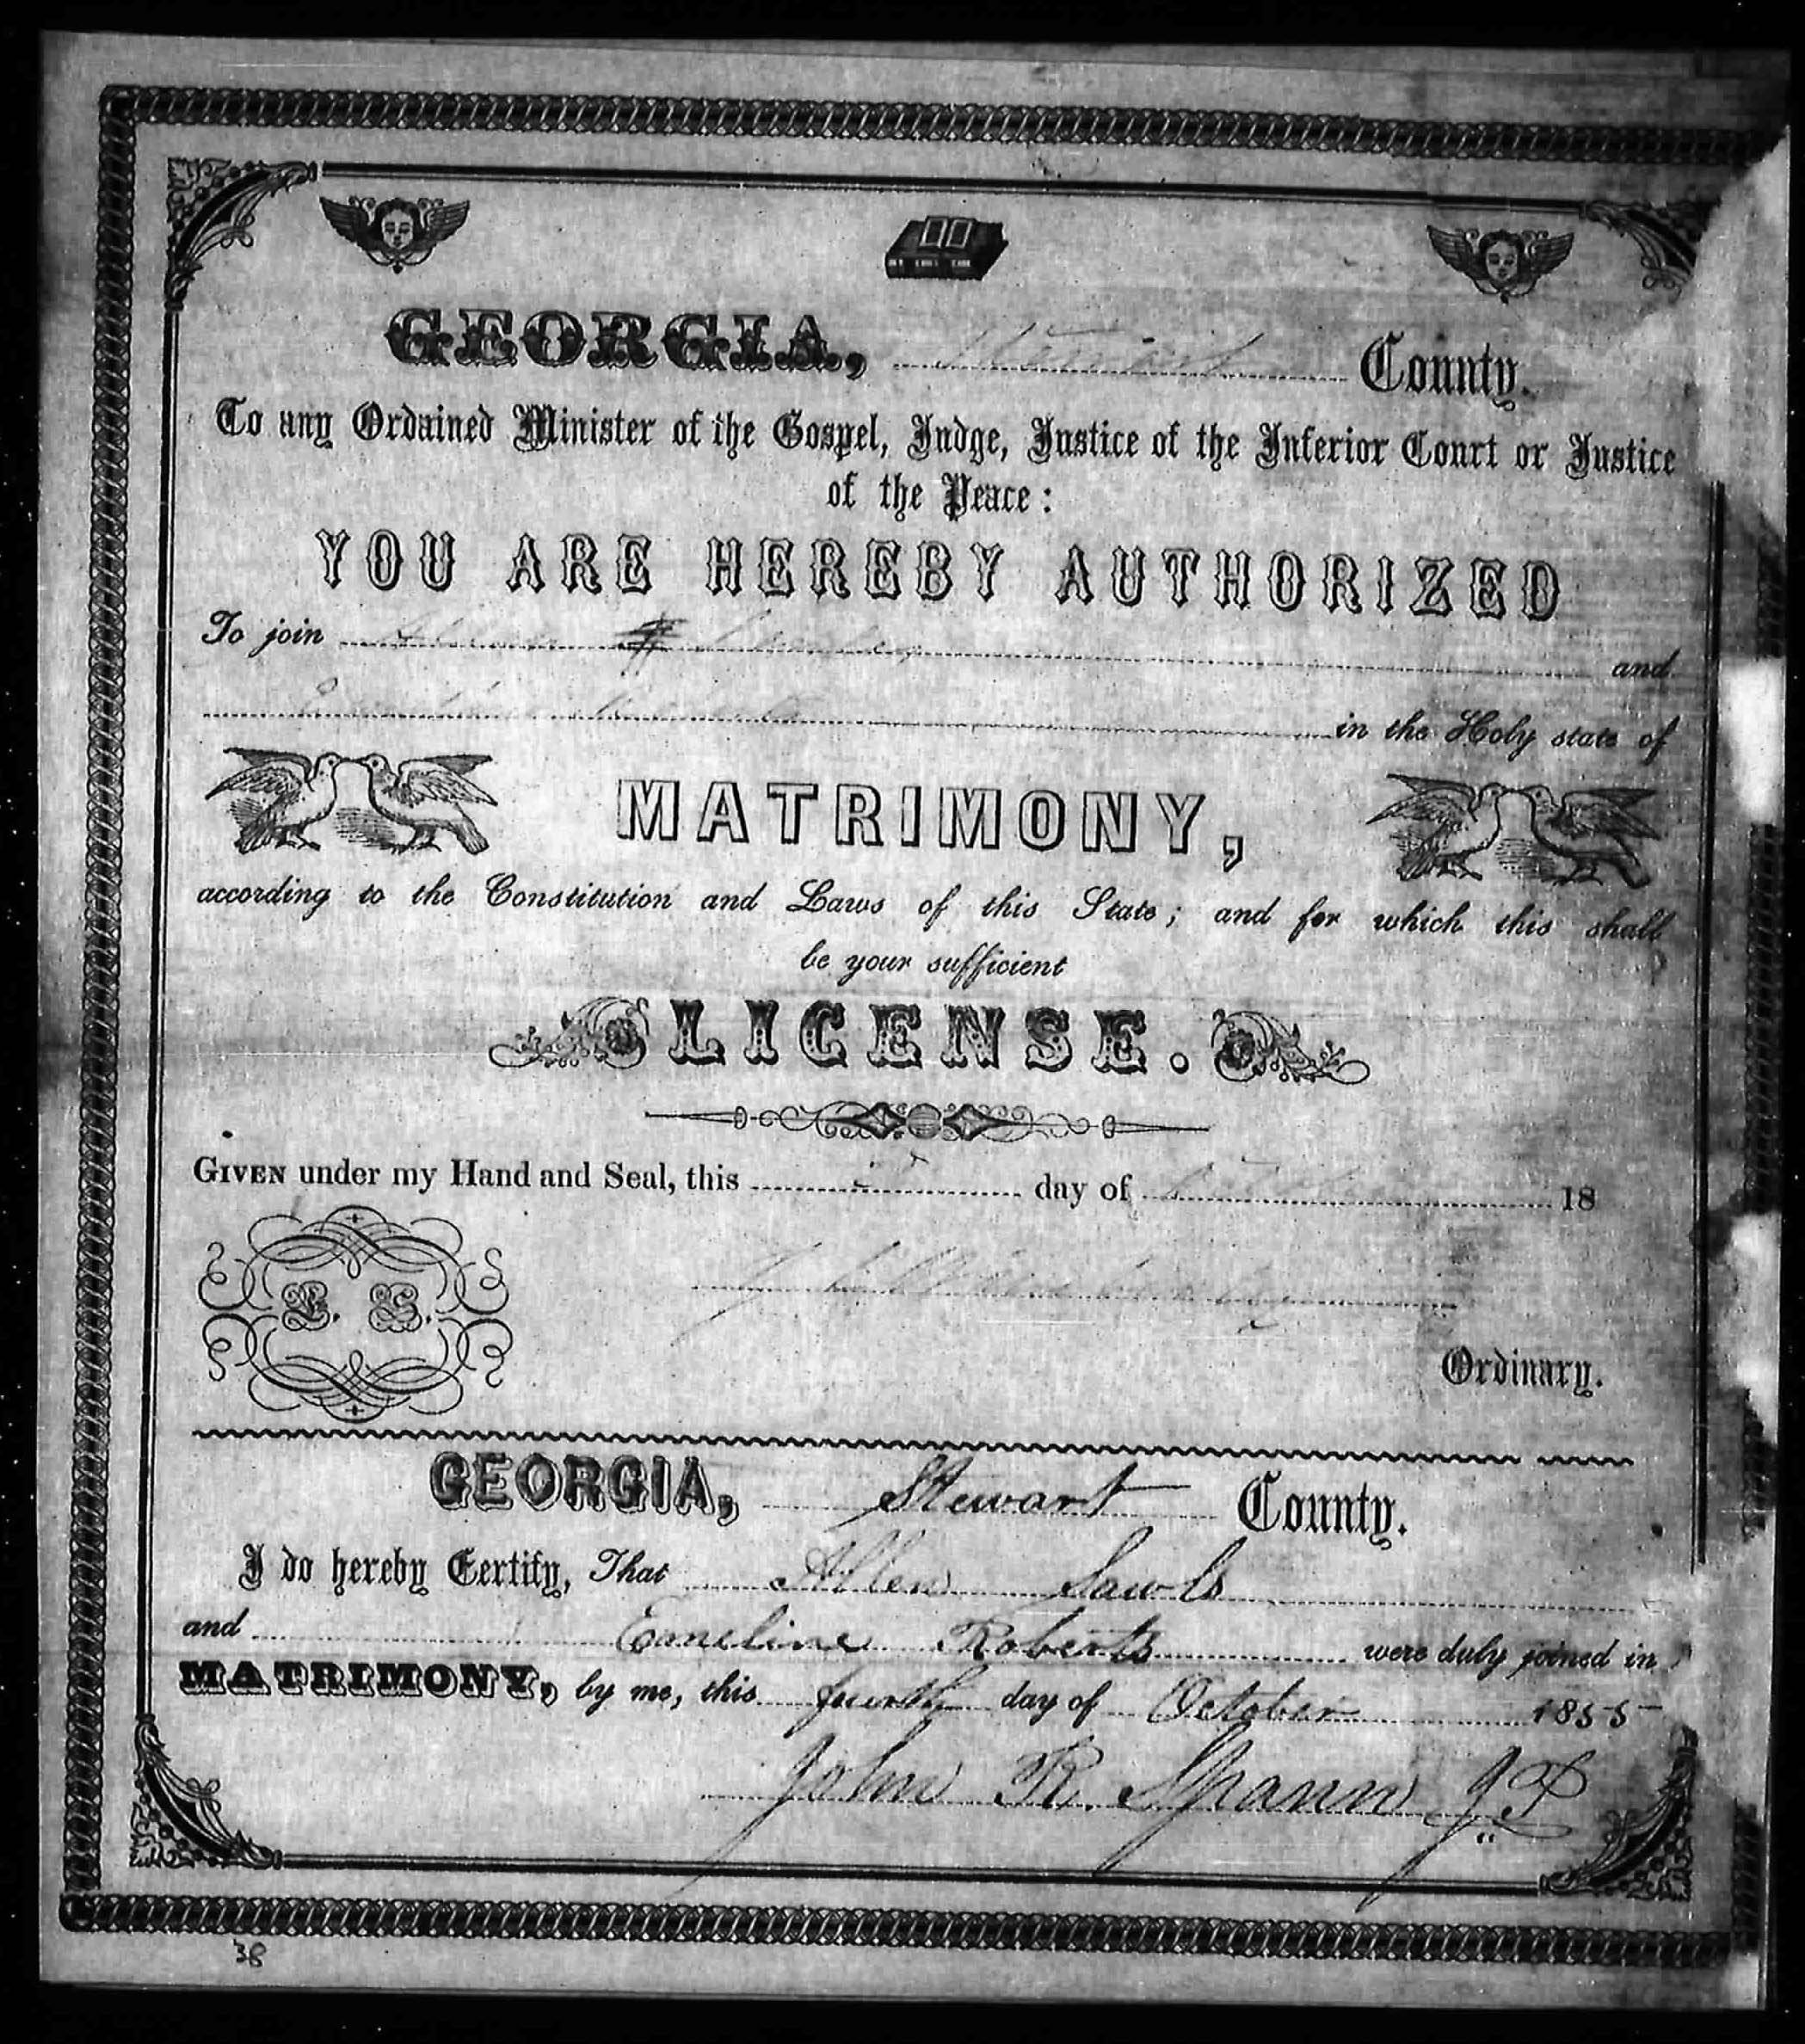 GEORGIA, Stewart County.
To any Ordained Minister of the Gospel, Judge, Justice of the Inferior Court or Justice
of the Peace:
YOU ARE HEREBY AUTHORIZED
To join and
in the Holy state of
MATRIMONY,
according to the Constitution and Laws of this State; and for which this shall
be your sufficient
LICENSE.
GIVEN under my Hand and Seal, this day of 18
L. S.
Ordinary.
GEORGIA, Stewart County.
I do hereby Certify, That Allen Sawls
and Emeline Roberts were duly joined in
MATRIMONY, by me, this fourth day of October 1855
John R. Spann J.P
38